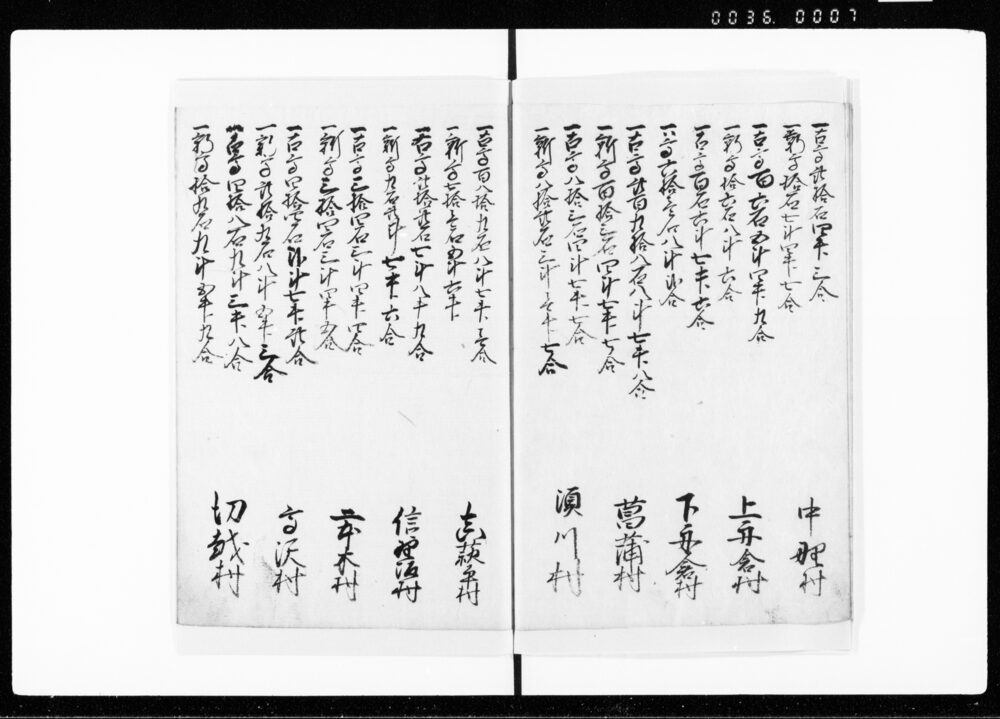 0036.0007
一古高弐拾石四斗三合
一新高拾石七斗四升七合
中野村
一古高百六石五斗四升九合
一新高拾六石八斗六合
上舟倉村
一古高百石六斗七升六合
一高六拾壱石八斗弐合
下舟倉村
一古高弐百九拾八石八斗七升八合
一新高百拾三石四斗七升七合
菖蒲村
一古高八拾三石四斗七升七合
一新高八拾弐石三斗壱升七合
須川村
一古高百八拾九石八斗七升壱合
一新高七拾壱石五斗六升
村
一古高弐拾弐石七斗八升九合
一新高九石弐斗七升六合
信野坂村
一古高三拾四石三斗四升四合
一新高三拾四石三斗四升五合
二本木村
一古高四拾四石弐斗七升弐合
一新高弐拾九石八斗五升三合
高沢村
一古高四拾八石九斗三升八合
一新高拾九石九斗五升九合
切越村